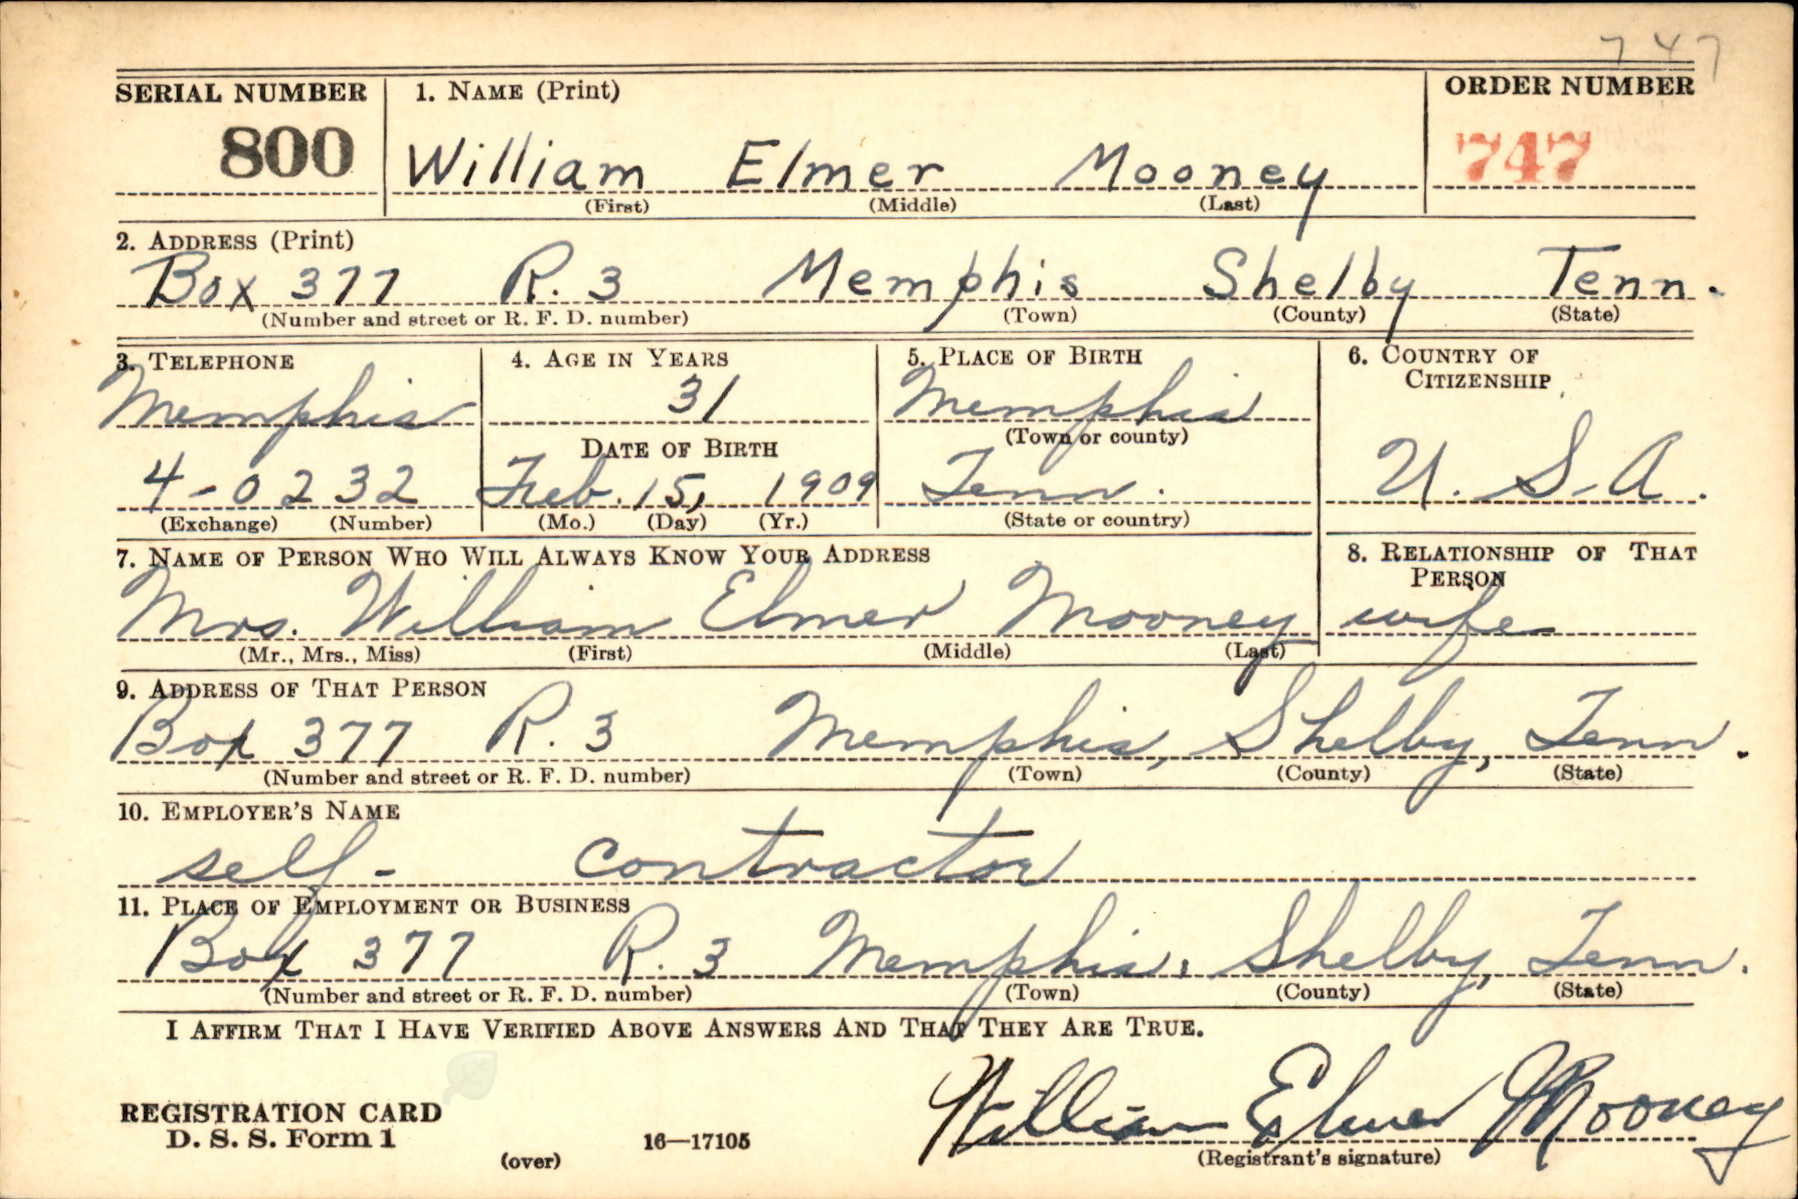 747
SERIAL NUMBER 1. NAME (Print) ORDER NUMBER
800 William Elmer Mooney 747
(First) (Middle) (Last)
2. ADDRESS (Print)
Box 377 R. 3 Memphis Shelby Tenn.
(Number and street or R. F. D. number) (Town) (County) (State)
3. TELEPHONE
Memphis
4-0232
(Exchange) (Number)
4. AGE IN YEARS
31
DATE OF BIRTH
Feb. 15, 1909
(Mo.) (Day) (Yr.)
5. PLACE OF BIRTH
Memphis
(Town or county)
Tenn.
(State or country)
6. COUNTRY OF
CITIZENSHIP
U. S. A.
7. NAME OF PERSON WHO WILL ALWAYS KNOW YOUR ADDRESS
Mrs. William Elmer Mooney
(Mr., Mrs., Miss) (First) (Middle) (Last)
8. RELATIONSHIP OF THAT
PERSON
wife
9. ADDRESS OF THAT PERSON
Box 377 R. 3 Memphis, Shelby, Tenn.
(Number and street or R. F. D. number) (Town) (County) (State)
10. EMPLOYER'S NAME
self - contractor
11. PLACE OF EMPLOYMENT OR BUSINESS
Box 377 R. 3 Memphis, Shelby, Tenn.
(Number and street or R. F. D. number) (Town) (County) (State)
I AFFIRM THAT I HAVE VERIFIED ABOVE ANSWERS AND THAT THEY ARE TRUE.
William Elmer Mooney
(Registrant's signature)
REGISTRATION CARD
D. S. S. Form 1
(over) 16—17105